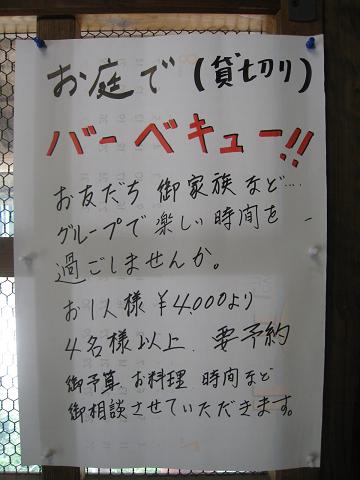 お庭で(貸切り)
バーベキュー!!
お友だち 御家族など....
グループで楽しい時間を
過ごしませんか。
お1人様 ¥4,000より
4名様以上. 要予約
御予算、お料理 時間など
御相談させていただきます。